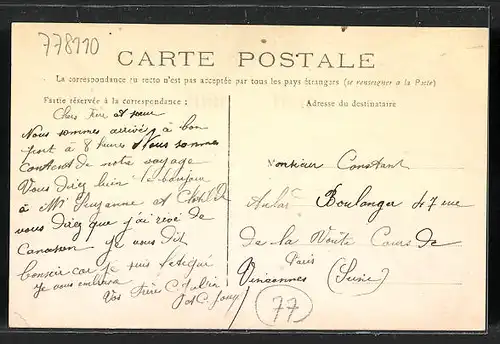 778110
CARTE POSTALE
La correspondance au recto n'est pas acceptée par tous les pays étrangers (se renseigner a la Poste)
Partie réservée à la correspondance :
Adresse du destinataire
Chers Frère et sœur
Nous sommes arrivés à bon
port à 8 heures Nous sommes
content de notre voyage
Vous direz bien le bonjour
à Mr Suzanne et
vous direz que j'ai rêvé de
je vous dit
bonsoir car je suis fatigué
je vous embrasse
Vos Frères C.
et C.
Monsieur Constant
Boulanger 47 rue
de la Voute Cours de
Paris
Vincennes (Seine)
77